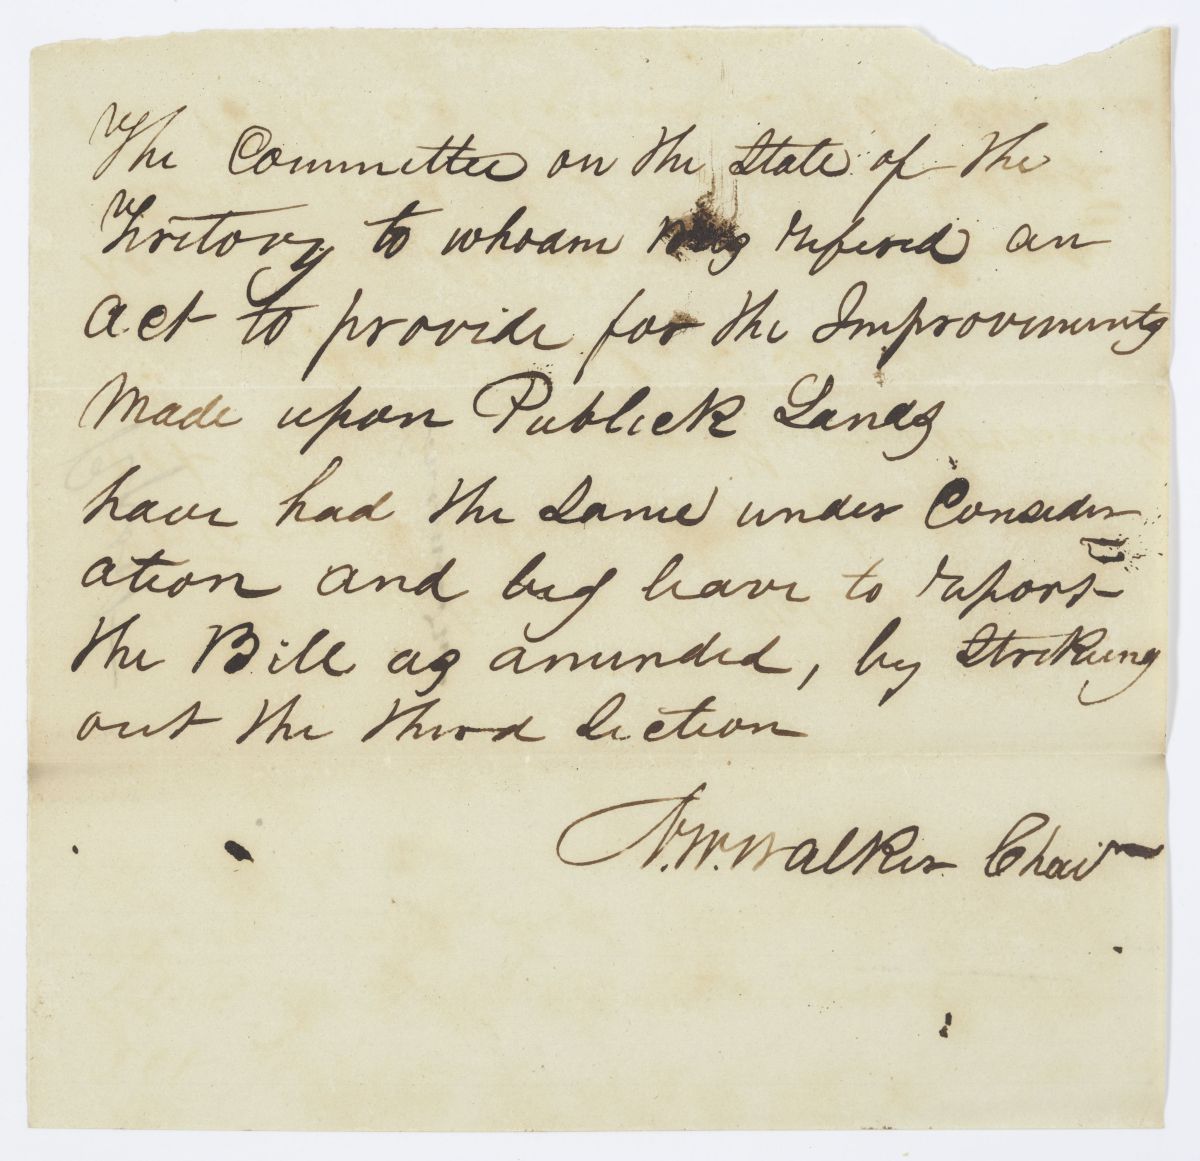 The Committee on the State of the
Teritory to whoam was refered an
act to provide for the Improvements
Made upon Publick Lands
have had the Same under Consider
ation and beg leave to report
the Bill as amended, by Strikeing
out the third Section
N. W. Walker Chair